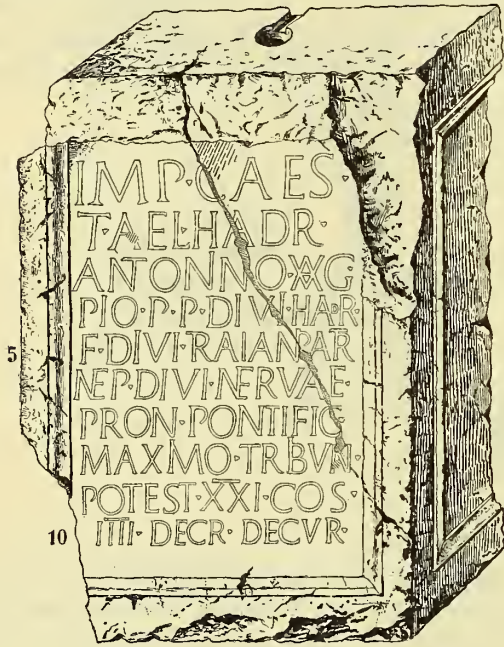 IMP·CAES·
T·AEL·HADR·
ANTONNO·AVG
PIO·P·P·DIVI·HADR
F·DIVI·RAIAN·PAR
NEP·DIVI·NERVAE·
PRON·PONTIFIC
MAXMO·TRBVN·
POTEST·XXI·COS·
IIII·DECR·DECVR·
5
10